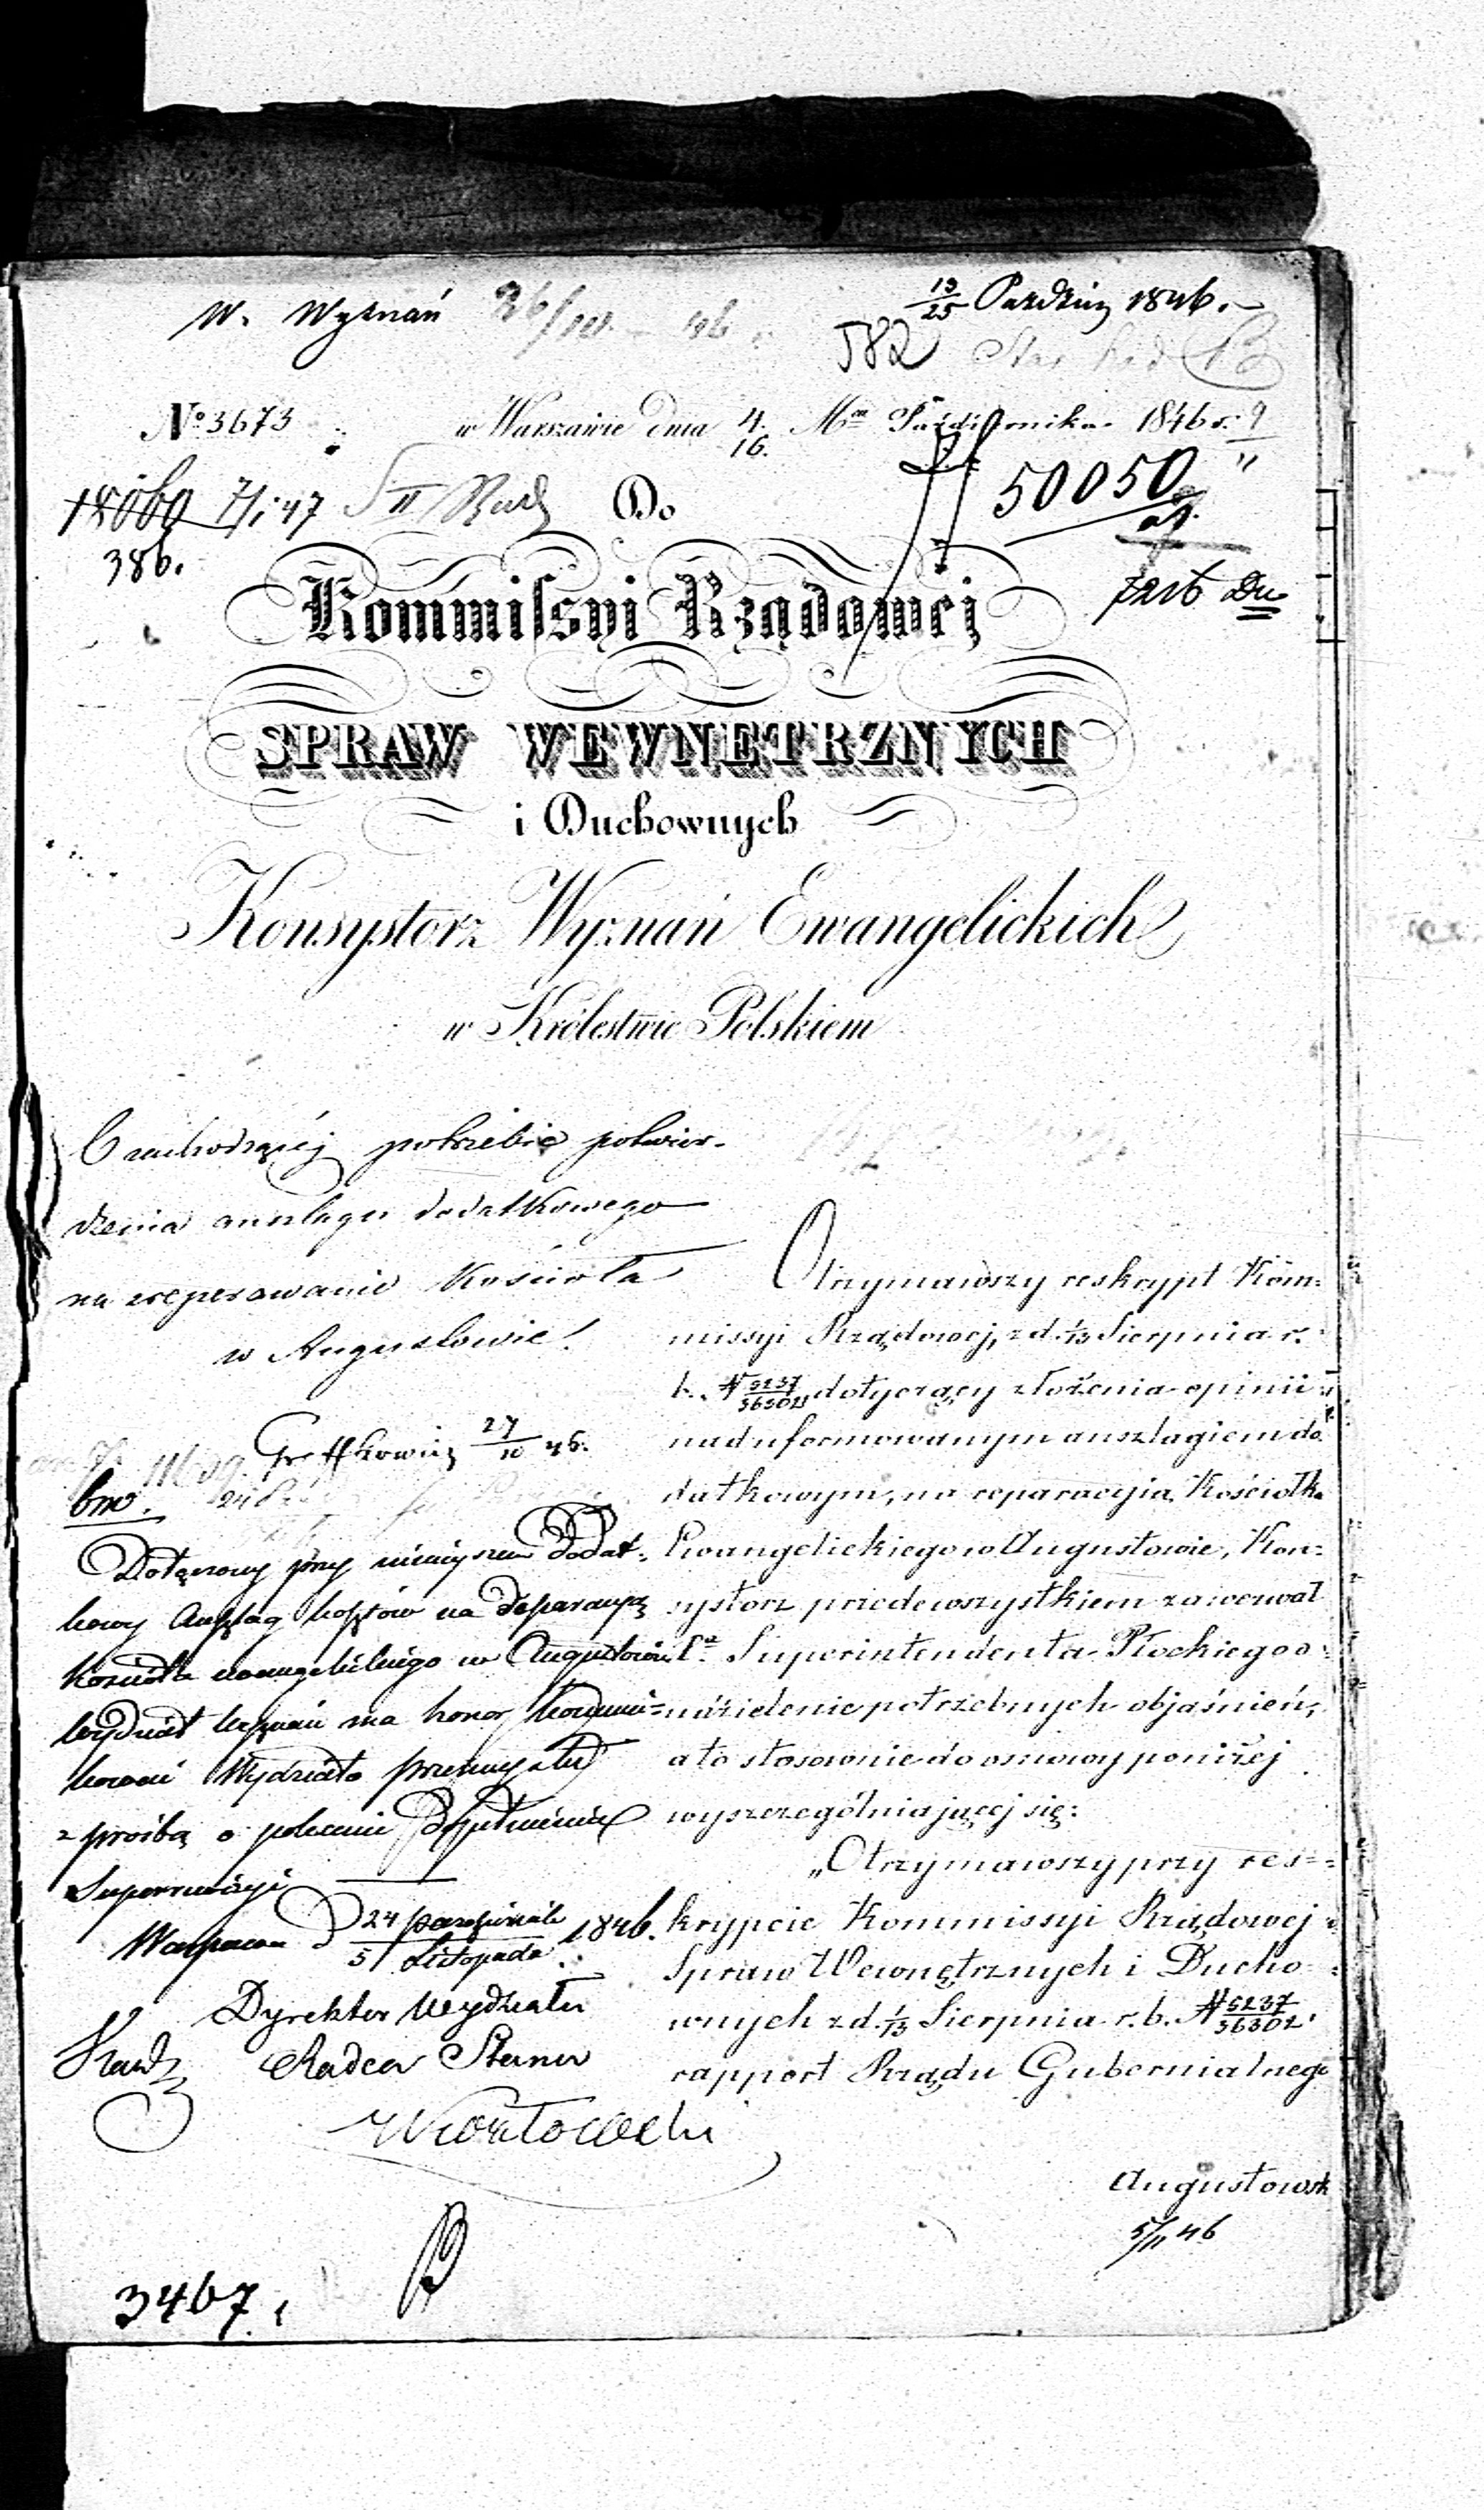 W. Wyznań 26/10 - 46
13/25 Paździer 1846.
582
№ 3673
w Warszawie dnia 4/16. Mca Października 1846 r.
18060 7/1 47 Do
50050
386.
7216
Kommissyi Rządowéj
SPRAW WEWNĘTRZNYCH
i Duchownych
Konsystorz Wyznań Ewangelickich
w Królestwie Polskiem
O zachodzącéj potrzebie potwier-
dzenia anszlagu dodatkowego
na zreperowanie Kościoła
w Augustowie.
27/10 46.
bm.
Dołączony przy niniejszem Dodat-
kowy Anszlag kosztów na Reparacyą
Kościoła ewangelickiego w Augustowie
Wydział Wyznań ma honor kommuni-
kować Wydziału Przemysłu
z prośbą o polecenie dopełnienia
Superrewizyi
Warszawa d 24 Października / 5 Listopada 1846.
Dyrektor Wydziału
Radca Stanu
3467.
Otrzymawszy reskrypt Kom-
missyi Rządowej, z d. 1/13 Sierpnia r.
b. N 5237/36302 dotyczący złożenia opinii
nad uformowanym anszlagiem do-
datkowym, na reparacyia Kościołka
Ewangelickiego w Augustowie, Kon-
systorz przedewszystkiem zawezwał
Superintendenta Płockiego o
udzielenie potrzebnych objaśnień,
a to stosownie do osnowy poniżej
wyszczególniającej się:
„Otrzymawszy przy res-
krypcie Kommissyi Rządowej
Spraw Wewnętrznych i Ducho-
wnych z d. 1/13 Sierpnia r. b. N 5237/36302.
rapport Rządu Gubernialnego
Augustowsk
5/11 46